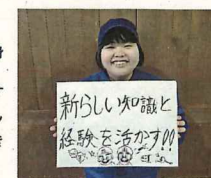 新らしい知識と
経験を活かす!!